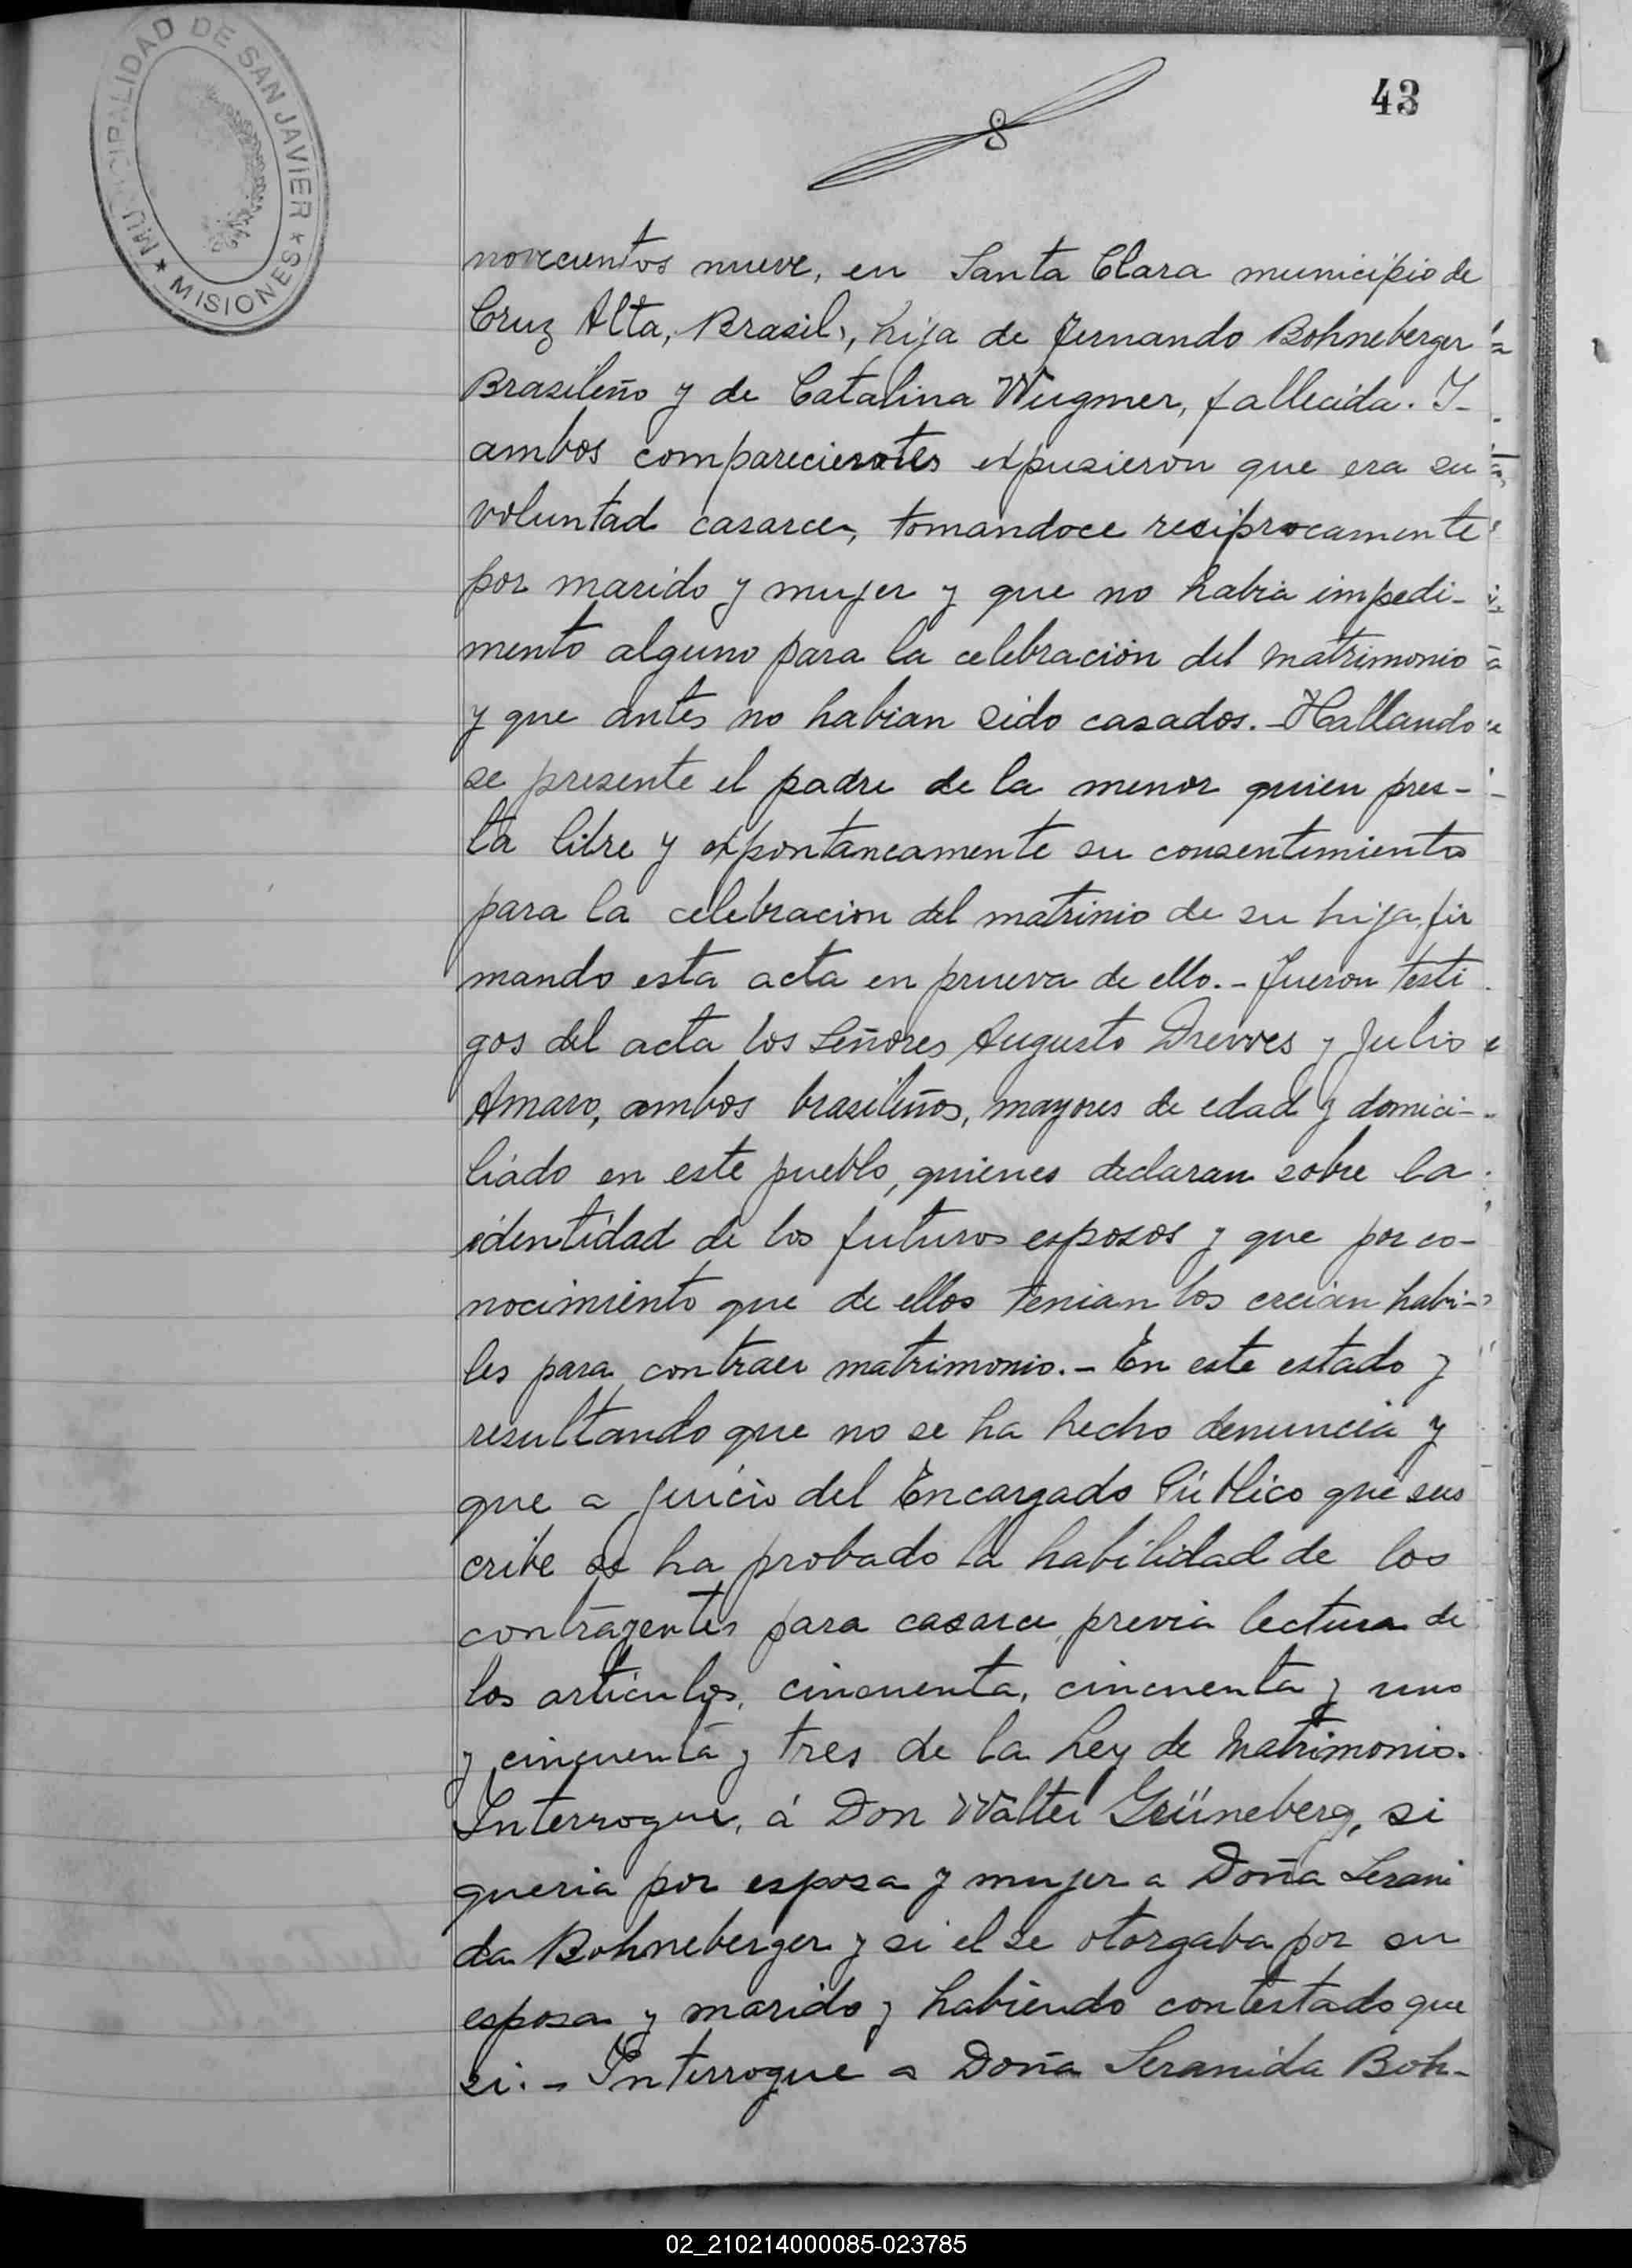 MUNICIPALIDAD DE SAN JAVIER
★ MISIONES ★
43
novecientos nueve, en Santa Clara municipio de
Cruz Alta, Brasil, hija de Fernando Bohneberger
Brasileño y de Catalina Wugmer, fallecida. Y-
ambos comparecientes expusieron que era su
voluntad casarce, tomandoce reciprocamente
por marido y mujer y que no habia impedi-
mento alguno para la celebración del matrimonio
y que antes no habian sido casados. - Hallando
se presente el padre de la menor quien pres-
ta libre y expontaneamente su consentimiento
para la celebracion del matrinio de su hija, fir
mando esta acta en prueva de ello. - Fueron testi
gos del acta los Señores Augusto Drewes y Julio
Amaro, ambos brasileños, mayores de edad y domici-
liado en este pueblo, quienes declaran sobre la
identidad de los futuros esposos y que por co-
nocimiento que de ellos tenian los creian habi-
les para contraer matrimonio. - En este estado y
resultando que no se ha hecho denuncia y
que a juicio del Encargado Público que sus
cribe se ha probado la habilidad de los
contrayentes para casarce, previa lectura de
los articulos, cincuenta, cincuenta y uno
y cincuenta y tres de la Ley de Matrimonio.
Interrogue, á Don Walter Grüneberg, si
queria por esposa y mujer a Doña Serani
da Bohneberger y si el se otorgaba por su
esposa y marido y habiendo contestado que
si. - Interrogue a Doña Seranida Boh-
02_210214000085-023785